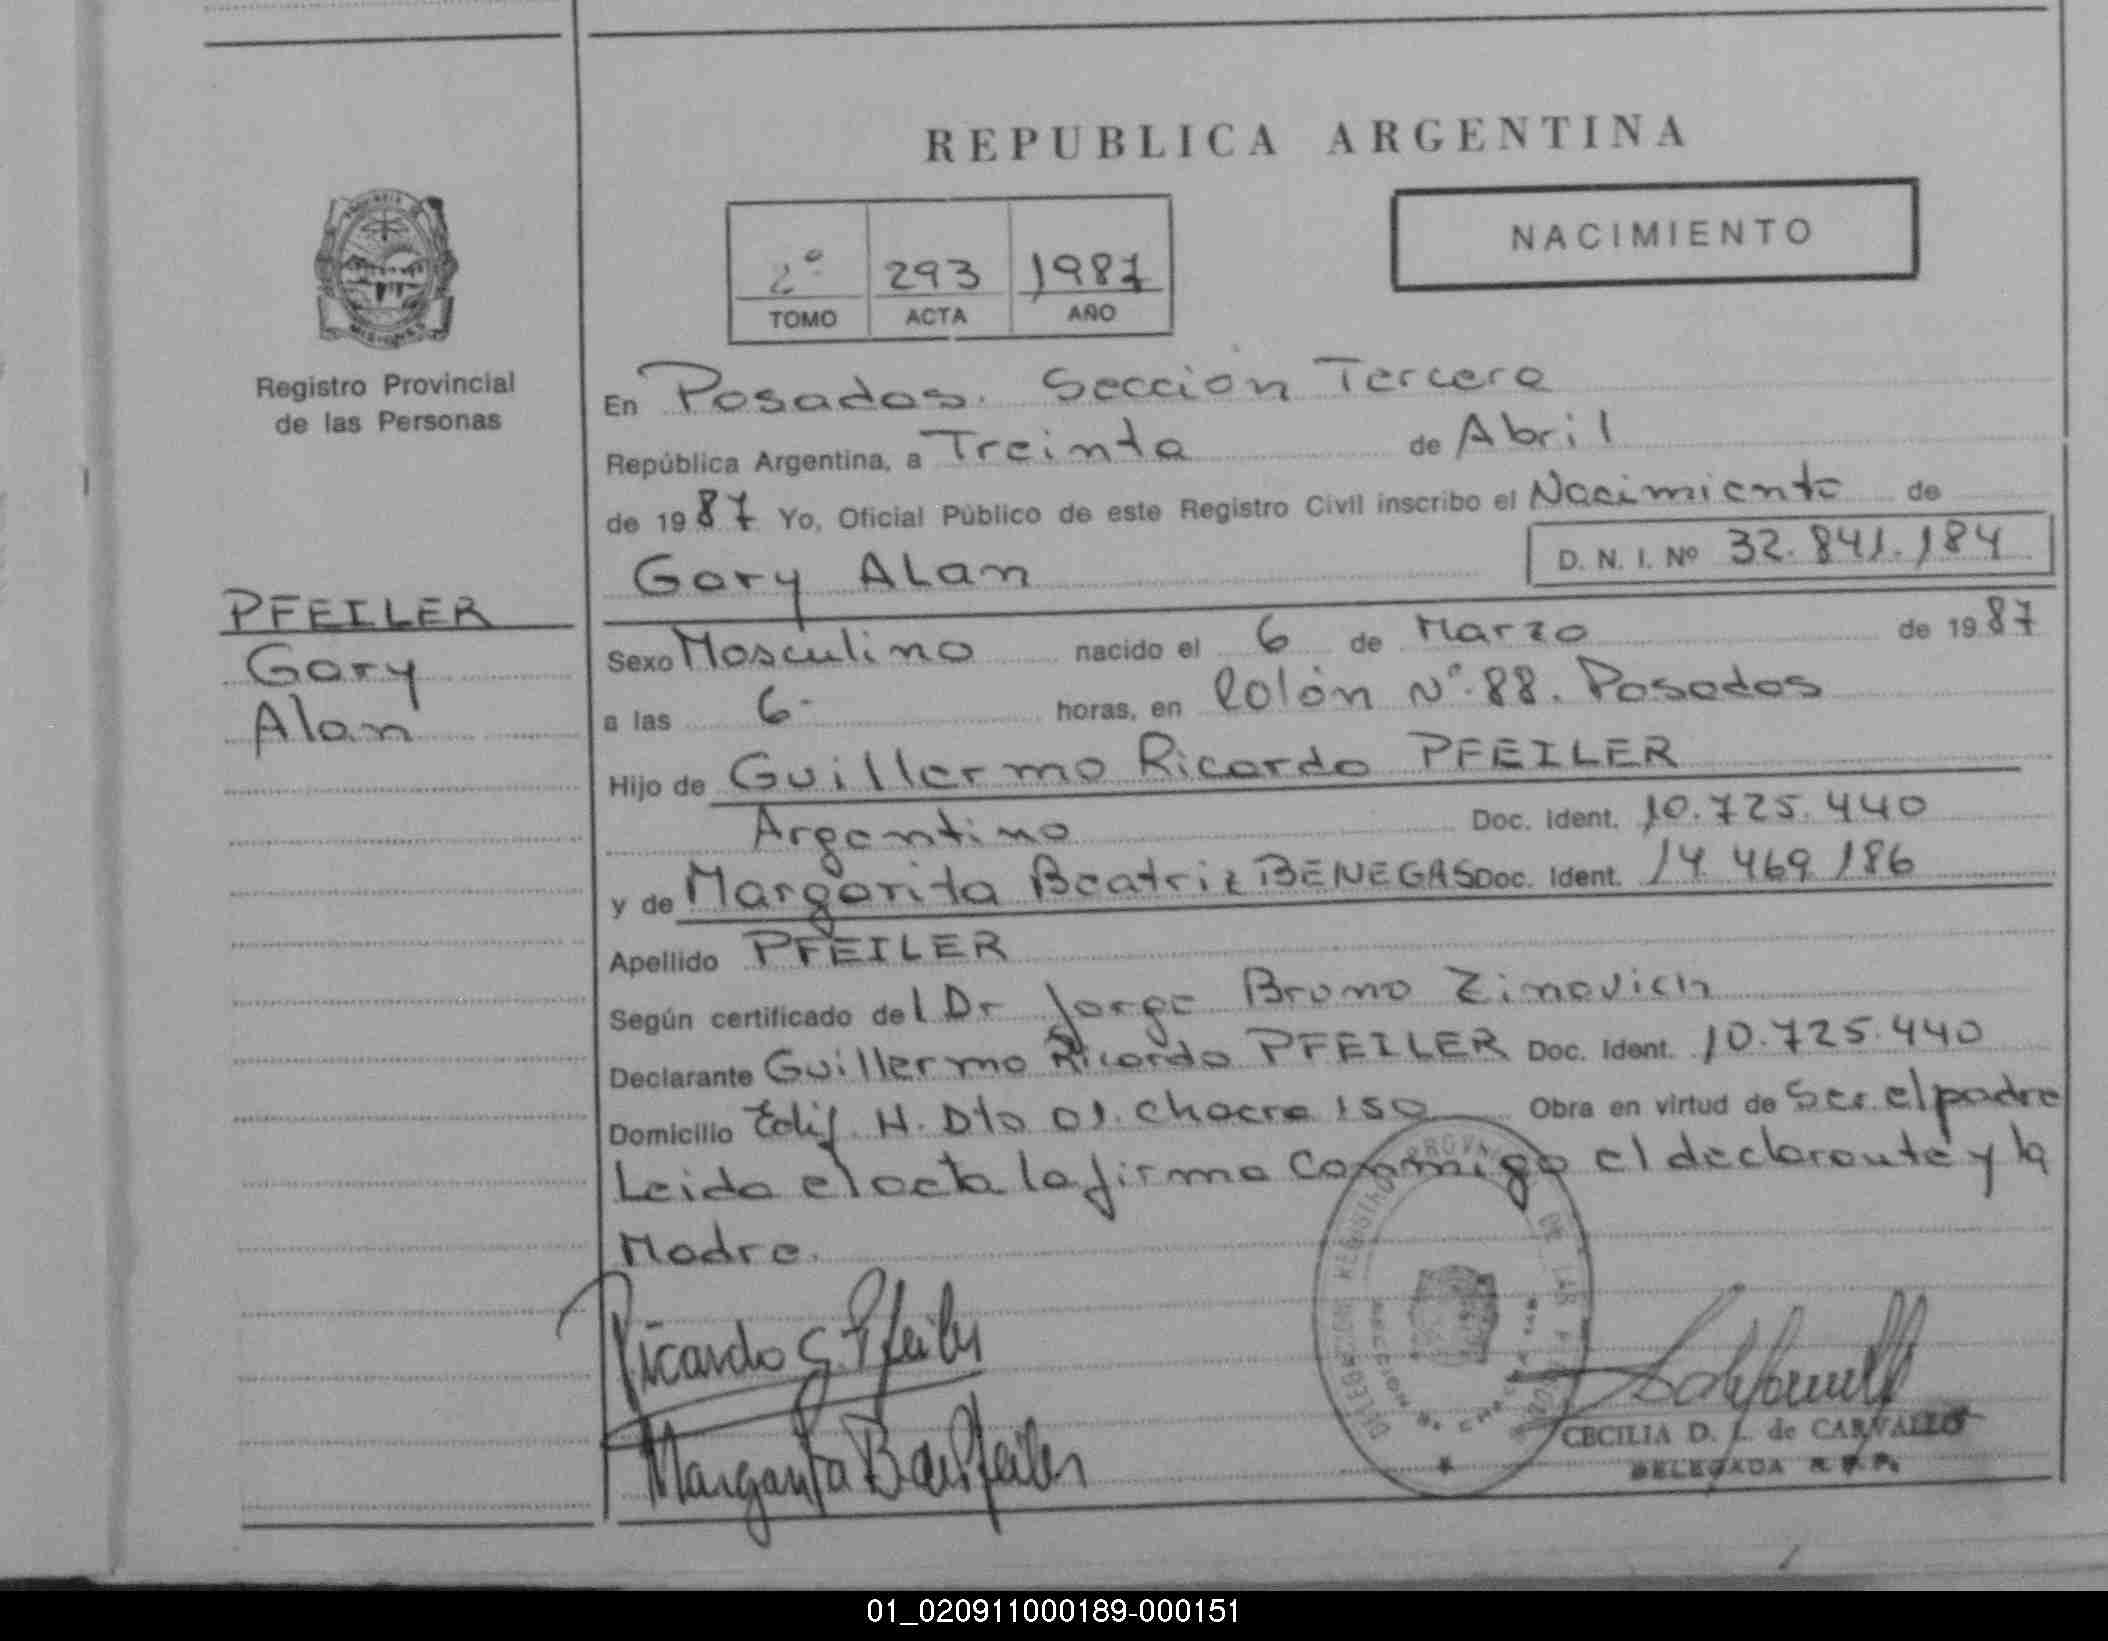 REPUBLICA ARGENTINA
NACIMIENTO
2º 293 1987
TOMO ACTA AÑO
Registro Provincial
de las Personas
PFEILER
Gary
Alan
En Posadas. Sección Tercera
República Argentina, a Treinta de Abril
de 1987 Yo, Oficial Público de este Registro Civil inscribo el Nacimiento de
Gary Alan
D. N. I. Nº 32.841.184
Sexo Masculino nacido el 6 de Marzo de 1987
a las 6- horas, en Colón Nº 88. Posadas
Hijo de Guillermo Ricardo PFEILER
Argentino Doc. Ident. 10.725.440
y de Margarita Beatriz BENEGAS Doc. Ident. 14.469.186
Apellido PFEILER
Según certificado del Dr Jorge Bruno Zinovich
Declarante Guillermo Ricardo PFEILER Doc. Ident. 10.725.440
Domicilio Edif. H. Dto 01. Chacra 150 Obra en virtud de Ser el padre
Leida el acta la firma conmigo el declarante y la
Madre.
Ricardo G. Pfeiler
Margarita B de Pfeiler
DE LAS
CECILIA D. L. de CARVALLO
DELEGADA R. P. P.
01_020911000189-000151